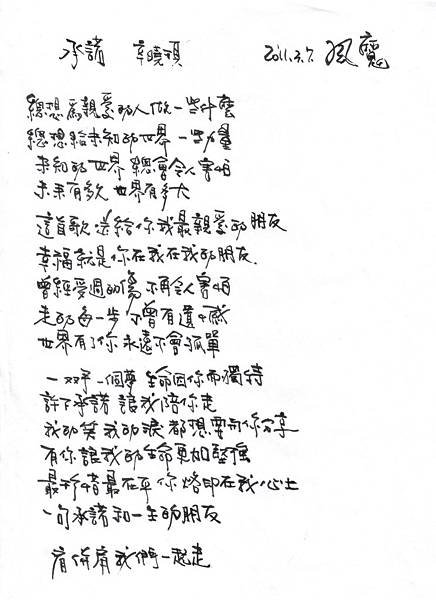 承諾 辛曉琪 2011.3.7. 風魔
總想為親愛的人做一些什麼
總想給未知的世界一些力量
未知的世界總會令人害怕
未來有多久 世界有多大
這首歌送給你我最親愛的朋友
幸福就是你在我在我的朋友.
曾經受過的傷 不再令人害怕
走的每一步 不曾有遺憾
世界有了你 永遠不會孤單
一双手 一個夢 生命因你而獨特
許下承諾 讓我陪你走
我的笑我的淚都想要和你分享
有你讓我的生命更加堅強
最珍惜最在乎 你烙印在我心上
一句承諾和一生的朋友
肩併肩我們一起走